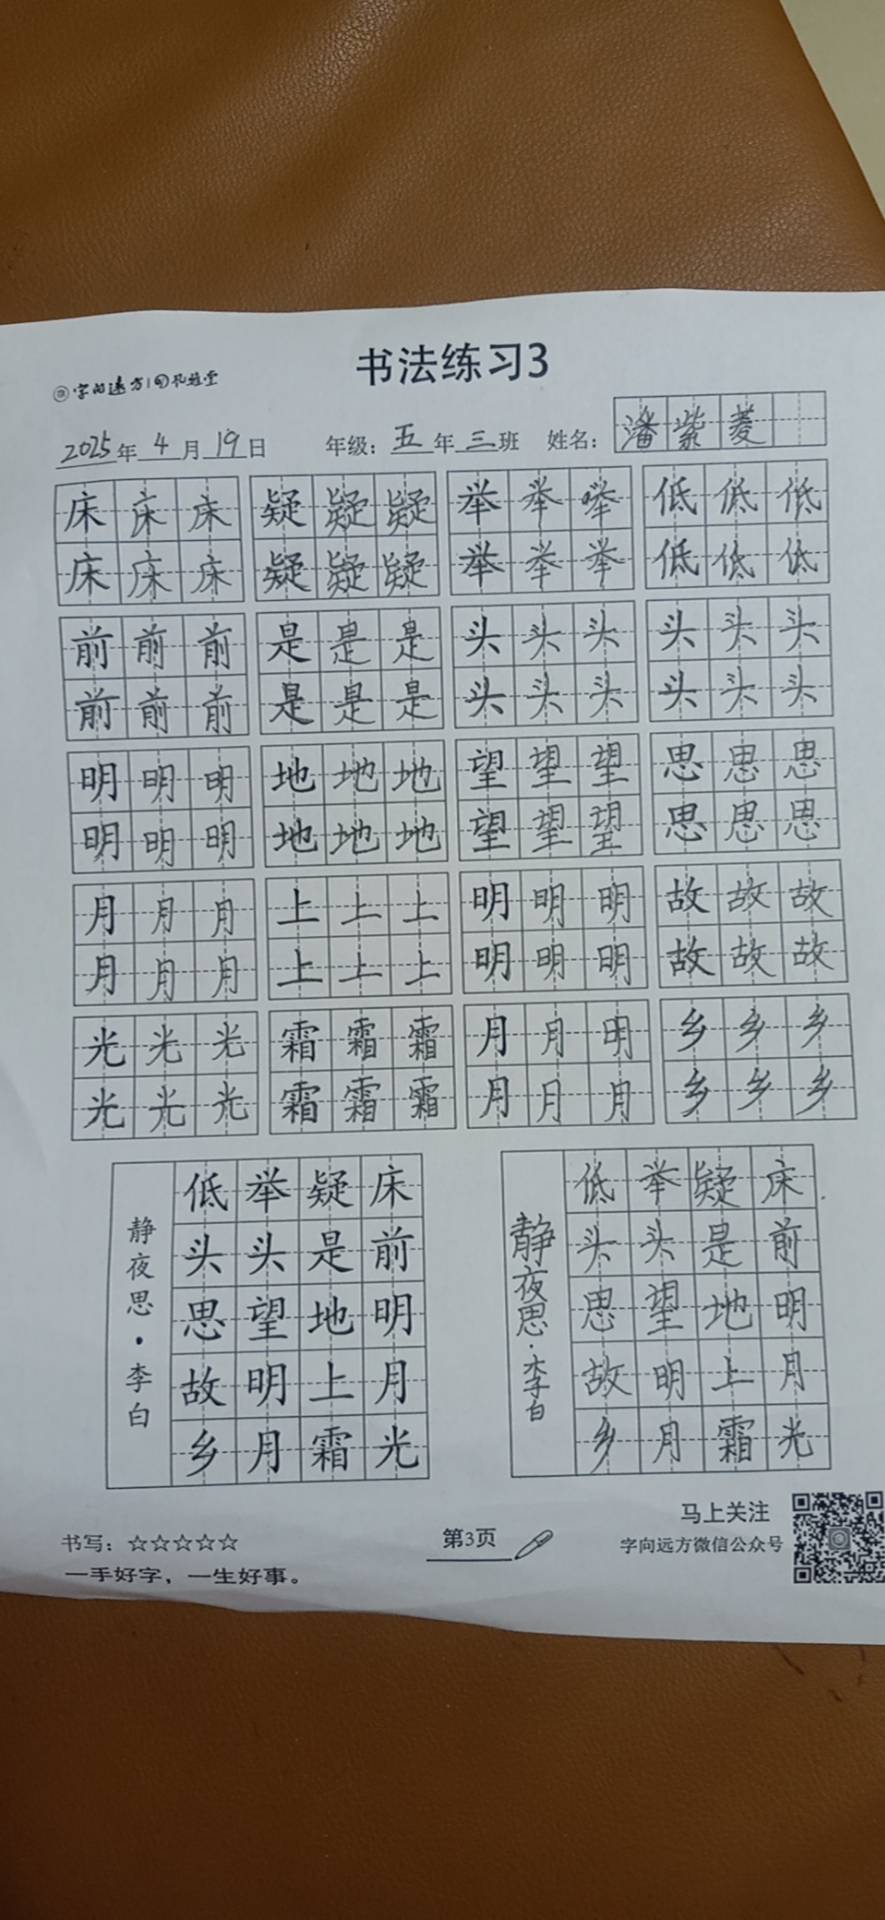 字向远方 孔雅堂
书法练习3
2025年4月19日 年级：五年三班 姓名：潘紫菱
床床床 疑疑疑 举举举 低低低
床床床 疑疑疑 举举举 低低低
前前前 是是是 头头头 头头头
前前前 是是是 头头头 头头头
明明明 地地地 望望望 思思思
明明明 地地地 望望望 思思思
月月月 上上上 明明明 故故故
月月月 上上上 明明明 故故故
光光光 霜霜霜 月月明 乡乡乡
光光光 霜霜霜 月月月 乡乡乡
床前明月光
疑是地上霜
举头望明月
低头思故乡
静夜思·李白
床前明月光
疑是地上霜
举头望明月
低头思故乡
静夜思·李白
书写：☆☆☆☆☆
一手好字，一生好事。
第3页
马上关注
字向远方微信公众号